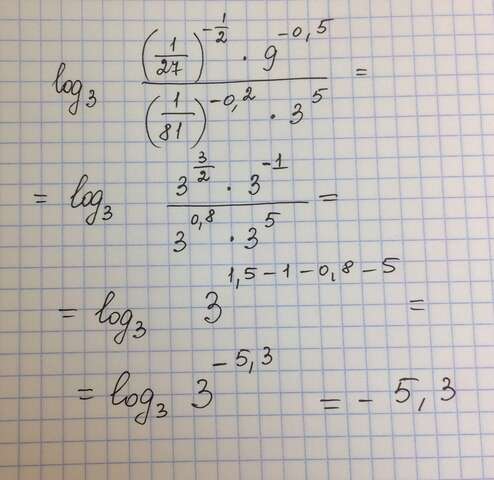 log₃ ((1/27)^(-1/2) · 9^(-0,5)) / ((1/81)^(-0,2) · 3^5) =
= log₃ (3^(3/2) · 3^(-1)) / (3^(0,8) · 3^5) =
= log₃ 3^(1,5-1-0,8-5) =
= log₃ 3^(-5,3) = - 5,3